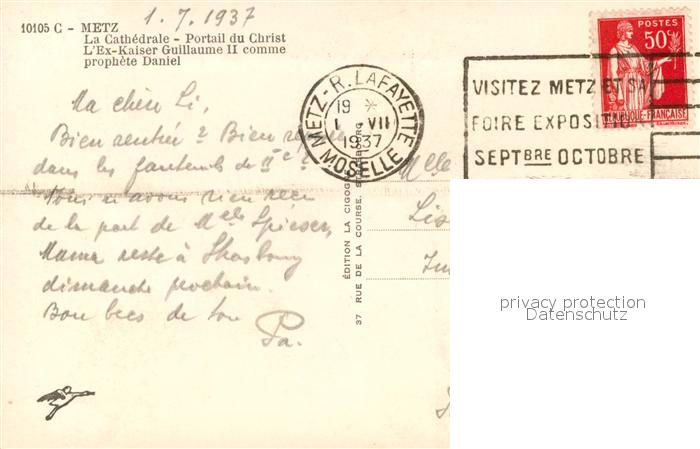 1.7.1937
10105 C - METZ
La Cathédrale - Portail du Christ
L'Ex-Kaiser Guillaume II comme
prophète Daniel
METZ-R. LAFAYETTE
19 *
1 VII
1937
MOSELLE
POSTES
50c
RÉPUBLIQUE-FRANÇAISE
VISITEZ METZ ET SA
FOIRE EXPOSITIO
SEPTBRE OCTOBRE
Ma chère Li,
Bien rentrée? Bien
dans les fauteuils de IIe cl?
Nous n'avons rien reçu
de la part de Melle Spieser,
Maman reste à Strasbourg
dimanche prochain.
Bon becs de ton
Pa.
ÉDITION LA CIGOGNE STRASBOURG
37 RUE DE LA COURSE.
Mlle
Lis
privacy protection
Datenschutz